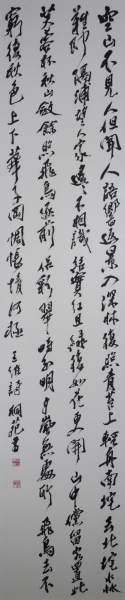 空山不見人但聞人語響返景入深林復照青苔上輕舟南垞去北垞淼
難即隔浦望人家遙遙不相識結實紅且綠復如花更開山中儻留客置此
芙蓉杯秋山斂餘照飛鳥逐前侶彩翠時分明夕嵐無處所飛鳥去不
窮復秋色上下華子岡惆悵情何極 王維詩 書